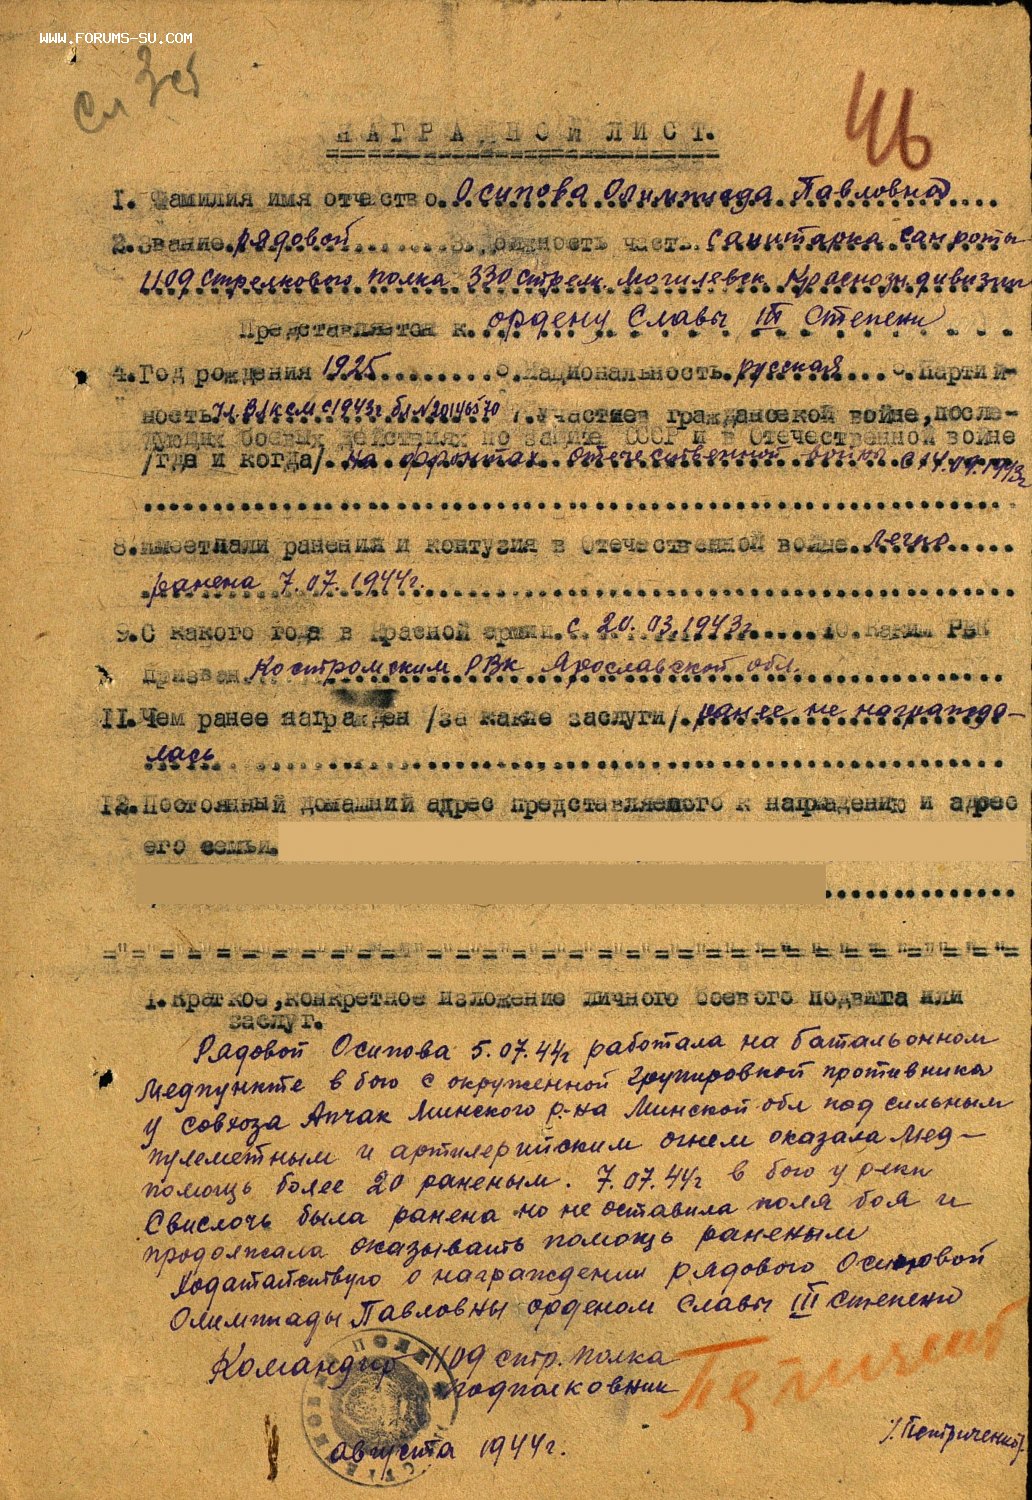 WWW.FORUMS-SU.COM
Сл 3 сб
46
НАГРАДНОЙ ЛИСТ.
1. Фамилия имя отчество. Осипова Олимпиада Павловна
2. Звание. рядовой 3. Должность часть. санитарка санроты
1109 стрелкового полка 330 стрелк. Могилевск. Краснозн. дивизии
Представляется к ордену Славы III степени
4. Год рождения 1925 5. Национальность. русская 6. Партий-
ность чл. ВЛКСМ с 1943г. бл № 20146570 7. Участиев гражданской войне, после-
дующих боевых действиях по защите СССР и в Отечественной войне
/где и когда/. на фронтах отечественной войны с 14.09.1943г
8. имеетлали ранения и контузия в Отечественной войне. легко
ранена 7.07.1944г.
9. С какого года в Красной армии. с 20.03.1943г 10. Каким РВК
призван Костромским РВК Ярославской обл.
11. Чем ранее награжден /за какие заслуги/. ранее не награжда-
лась
12. Постоянный домашний адрес представляемого к награждению и адрес
его семьи.
1. Краткое, конкретное изложение личного боевого подвига или
заслуг.
Рядовой Осипова 5.07.44г работала на батальонном
медпункте в бою с окруженной группировкой противника
у совхоза Апчак Минского р-на Минской обл под сильным
пулеметным и артилерийским огнем оказала мед-
помощь более 20 раненым. 7.07.44г в бою у реки
Свислочь была ранена но не оставила поля боя и
продолжала оказывать помощь раненым
Ходатайствую о награждении рядового Осиповой
Олимпиады Павловны орденом Славы III степени
Командир 1109 стр. полка
подполковник
/. Петриченко/.
августа 1944г.